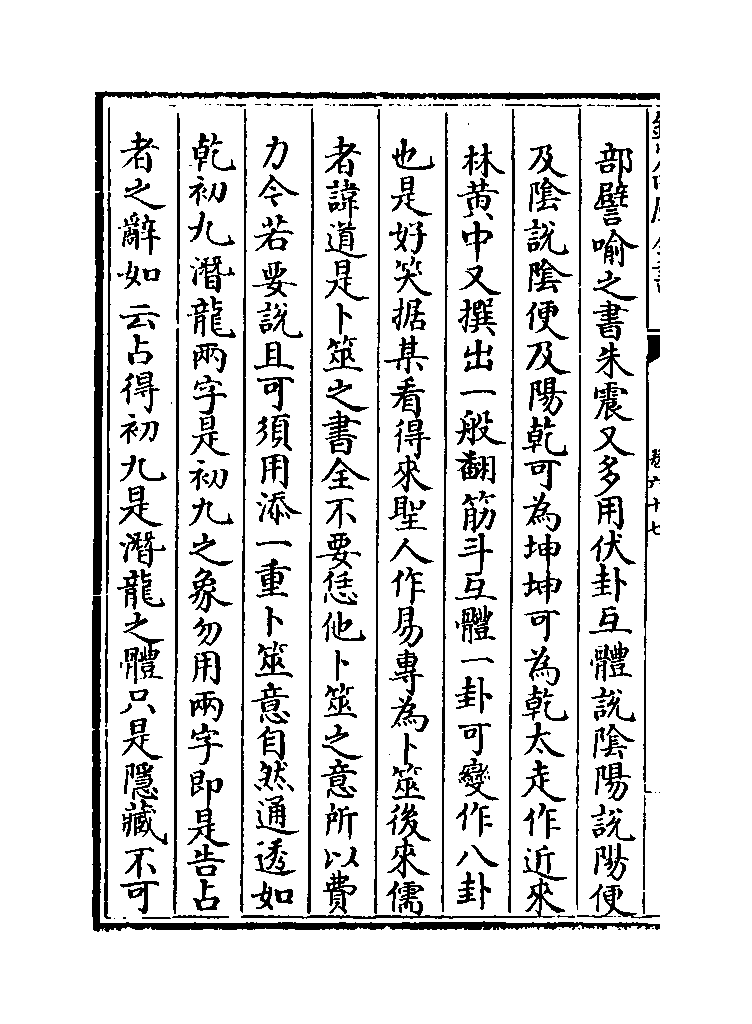 部譬喻之書朱震又多用伏卦互體說陰陽說陽便
及陰說陰便及陽乾可為坤坤可為乾太走作近來
林黃中又撰出一般翻筋斗互體一卦可變作八卦
也是好笑据某看得來聖人作易專為卜筮後來儒
者諱道是卜筮之書全不要恁他卜筮之意所以費
力今若要說且可須用添一重卜筮意自然通透如
乾初九潛龍兩字是初九之象勿用兩字即是告占
者之辭如云占得初九是潛龍之體只是隱藏不可
卷六十七